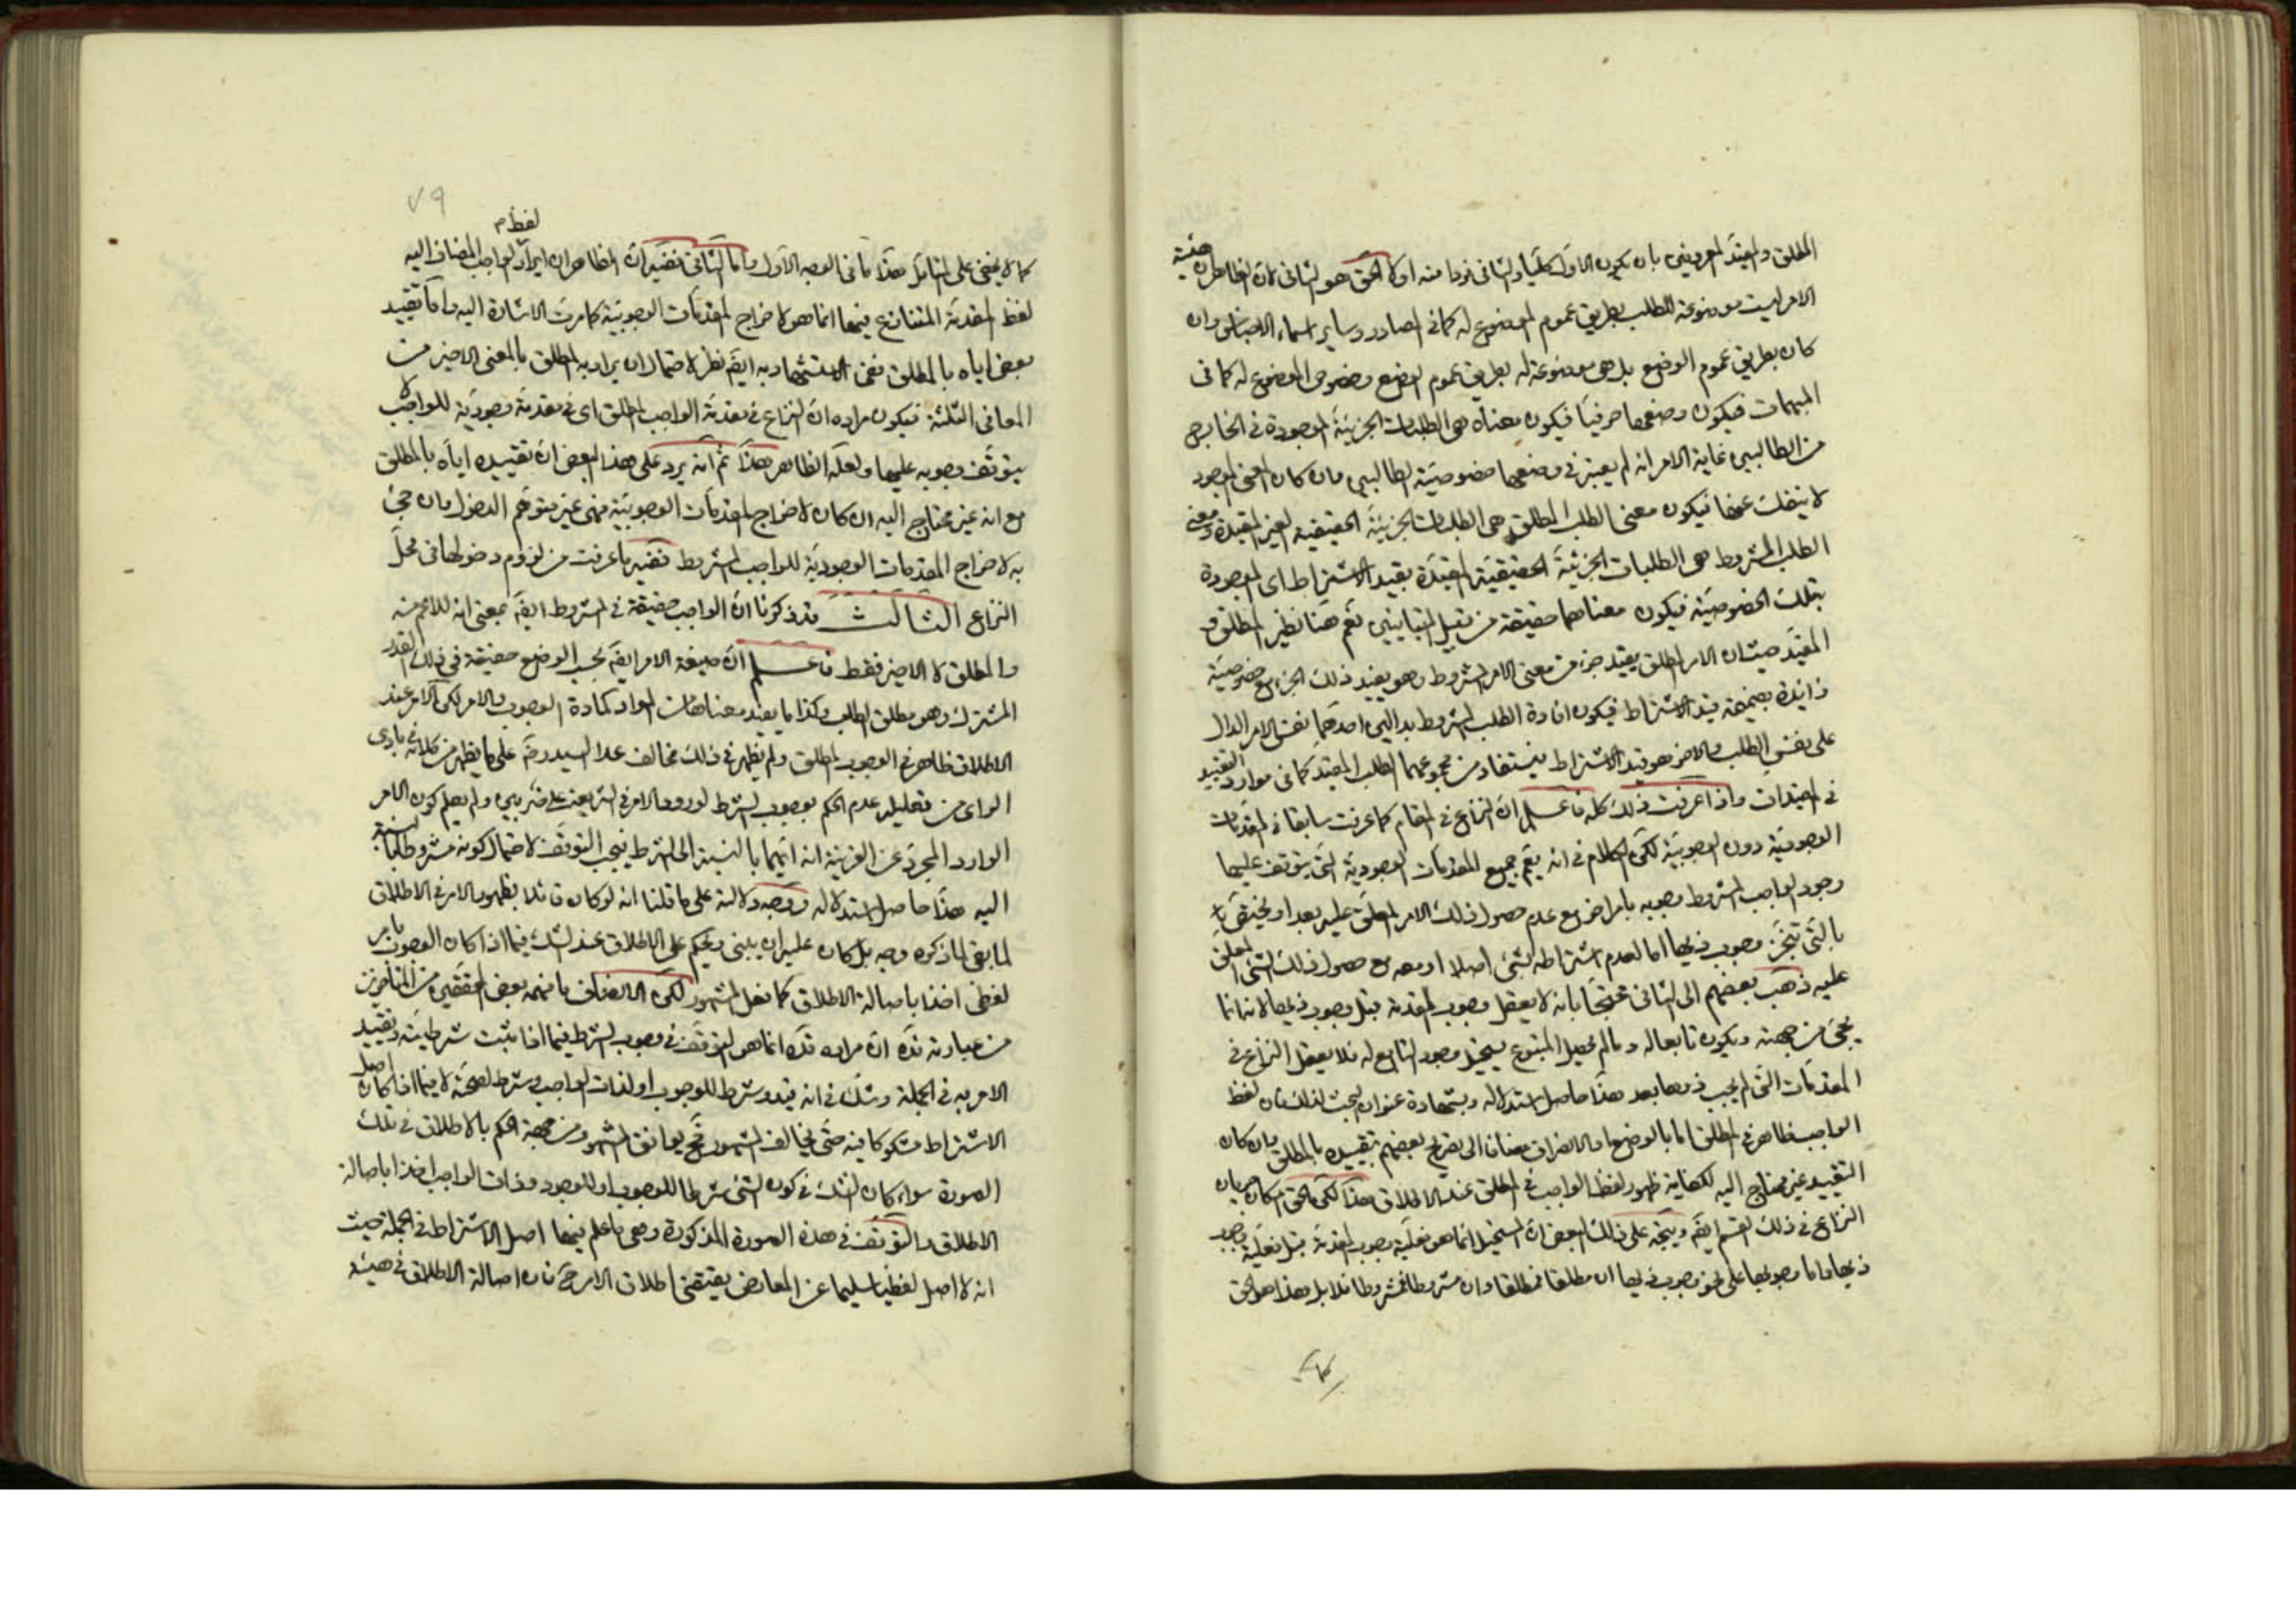 المطلق والمقيد المعروفين بان يكون الاول كليا والثاني فردا منه اولا الحق هو الثاني لان الظاهر ان هيئة
الامر ليست موضوعة للطلب بطريق عموم الموضوع له كما في المصادر وساير اسماء الاجناس وان
كان بطريق عموم الوضع بل هي موضوعة له بطريق عموم الوضع وخصوص الموضوع له كما في
المبهمات فيكون وضعها حرفيا فيكون معناه هي الطلبات الجزئية الموجودة في الخارج
من الطالبين غاية الامر انه لم يعتبر في وضعها خصوصية الطالبين وان كان المعنى الموجود
لا ينفك عنها فيكون معنى الطلب المطلق هي الطلبات الجزئية الحقيقية الغير المقيدة ومعنى
الطلب المشروط هي الطلبات الجزئية الحقيقية المقيدة بقيد الاشتراط اى الموجودة
بتلك الخصوصية فيكون معناهما حقيقة من قبيل المتباينين نعم هنا نظير المطلق و
المقيد حيث ان الامر المطلق يفيد جزء من معنى الامر المشروط وهو يفيد ذلك الجزء مع خصوصية
زائدة بضميمة قيد الاشتراط فيكون افادة الطلب المشروط بدالين احدهما نفس الامر الدال
على نفس الطلب والاخر هو قيد الاشتراط فيستفاد من مجموعهما الطلب المقيد كما في موارد التقييد
في المقيدات واذا عرفت ذلك كله فاعلم ان النزاع في المقام كما عرفت سابقا في المقدمات
الوجودية دون الوجوبية لكن الكلام في انه يعم جميع المقدمات الوجودية التي يتوقف عليها
وجود الواجب المشروط وجوبه بامر اخر مع عدم حصول ذلك الامر المعلق عليه بعد او يختص
بالتي تنجز وجوب ذيها اما لعدم اشتراطه بشئ اصلا او معه مع حصول ذلك الشئ المعلق
عليه ذهب بعضهم الى الثاني محتجا بانه لا يعقل وجوب المقدمة قبل وجوب ذيها لانه انما
يجئ من جهته ويكون تابعا له وما لم يحصل المتبوع يستحيل وجود التابع له فلا يعقل النزاع في
المقدمات التي لم يجب ذوها بعد هذا حاصل استدلاله ويشهادة عنوان البحث لذلك فان لفظ
الواجب ظاهر في المطلق اما بالوضع او الانصراف مضافا الى تصريح بعضهم بتقييده بالمطلق وان كان
التقييد غير محتاج اليه لكفاية ظهور لفظ الواجب في المطلق عند الاطلاق هذا لكن الحق امكان جريان
النزاع في ذلك القسم ايضا ويتجه على ذلك البعض ان المستحيل انما هو فعلية وجوب المقدمة قبل فعلية وجوب
ذيها واما وجوبها على نحو وجوب ذيها ان مطلقا فمطلقا وان مشروطا فمشروطا فلا بل هذا هو الحق
٧٩
لفظ
كما لا يخفى على المتامل هذا ما في الوجه الاول واما الثاني ففيه ان الظاهر ان ايراد الواجب المضاف اليه
لفظ المقدمة المتنازع فيها انما هو لاخراج المقدمات الوجوبية كما مرت الاشارة اليه واما تقييد
بعض اياه بالمطلق ففي الاستشهاد به ايضا نظر لاحتمال ان يراد به المطلق بالمعنى الاخير من
المعاني الثلثة فيكون مراده ان النزاع في مقدمة الواجب المطلق اى في مقدمة وجودية للواجب لا
يتوقف وجوبه عليها ولعله الظاهر هذا ثم انه يرد على هذا البعض ان تقييده اياه بالمطلق
مع انه غير محتاج اليه ان كان لاخراج المقدمات الوجوبية فهي غير متوهم الدخول وان جئ
به لاخراج المقدمات الوجودية للواجب المشروط ففيه ما عرفت من لزوم دخولها في محل
النزاع الثالث قد ذكرنا ان الواجب حقيقة في المشروط ايضا بمعنى انه للاعم منه
والمطلق لا الاخير فقط فاعلم ان صيغة الامر ايضا بحسب الوضع حقيقة في ذلك القدر
المشترك وهو مطلق الطلب وكذا ما يفيد معناها من المواد كمادة الوجوب والامر لكن الامر عند
الاطلاق ظاهر في الوجوب المطلق ولم يظهر في ذلك مخالف عدا السيد ره على ما يظهر من كلامه في بادى
الراى من تعليله عدم الحكم بوجوب الشرط لورود الامر في الشريعة على ضربين ولم يعلم كون الامر
الوارد المجرد عن القرينة انه ايهما بالنسبة الى الشرط فيجب التوقف لاحتمال كونه مشروطا بالنسبة
اليه هذا حاصل استدلاله ووجه دلالته على ما قلنا انه لو كان قائلا بظهور الامر في الاطلاق
لما بقي لما ذكره وجه بل كان عليه ان يبني ويحكم على الاطلاق عند الشك فيما اذا كان الوجوب بامر
لفظي اخذا باصالة الاطلاق كما فعل المشهور لكن الانصاف ما فهمه بعض المحققين من المتاخرين
من عبارته قده ان مراده قده انما هو التوقف في وجوب الشرط فيما اذا ثبت شرطيته وتقييد
الامر به في الجملة وشك في انه قيد وشرط للوجوب او لذات الواجب وشرط لصحته لا فيما اذا كان اصل
الاشتراط مشكوكا فيه حتى يخالف المشهور فح يوافق المشهور من جهة الحكم بالاطلاق في تلك
الصورة سواء كان الشك في كون الشئ شرطا للوجوب او للوجود وذات الواجب اخذا باصالة
الاطلاق والتوقف في هذه الصورة المذكورة وهي ما علم فيها اصل الاشتراط في الجملة حيث
انه لا اصل لفظيا سليما عن المعارض يقتضي اطلاق الامر ح فان اصالة الاطلاق في هيئة